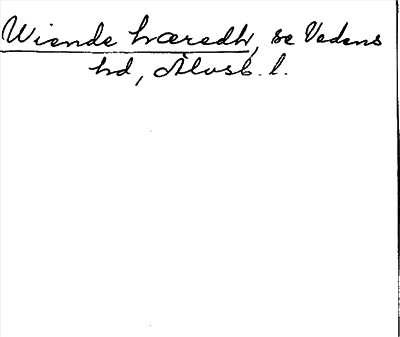 Wiende hæredh, se Vedens
hd, Älvsb. l.